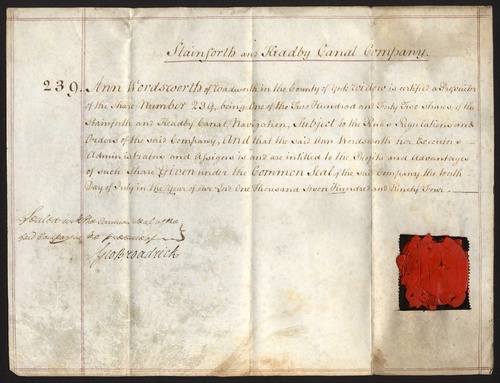 Stainforth and Keadby Canal Company.
239. Ann Wordsworth of Wadworth in the County of York Widow is certified a Proprietor
of the Share Number 239, being One of the Two Hundred and Forty Two shares of the
Stainforth and Keadby Canal Navigation, Subject to the Rules Regulations and
Orders of the said Company, And that the said Ann Wordsworth her Executors
Administrators and Assigns is and are intitled to the Profits and Advantages
of such Share Given under the Common Seal of the said Company the tenth
Day of July in the Year of our Lord One Thousand Seven Hundred and Ninety Four.
Sealed with the Common Seal of the
said Company in the presence of
Geo Broadrick